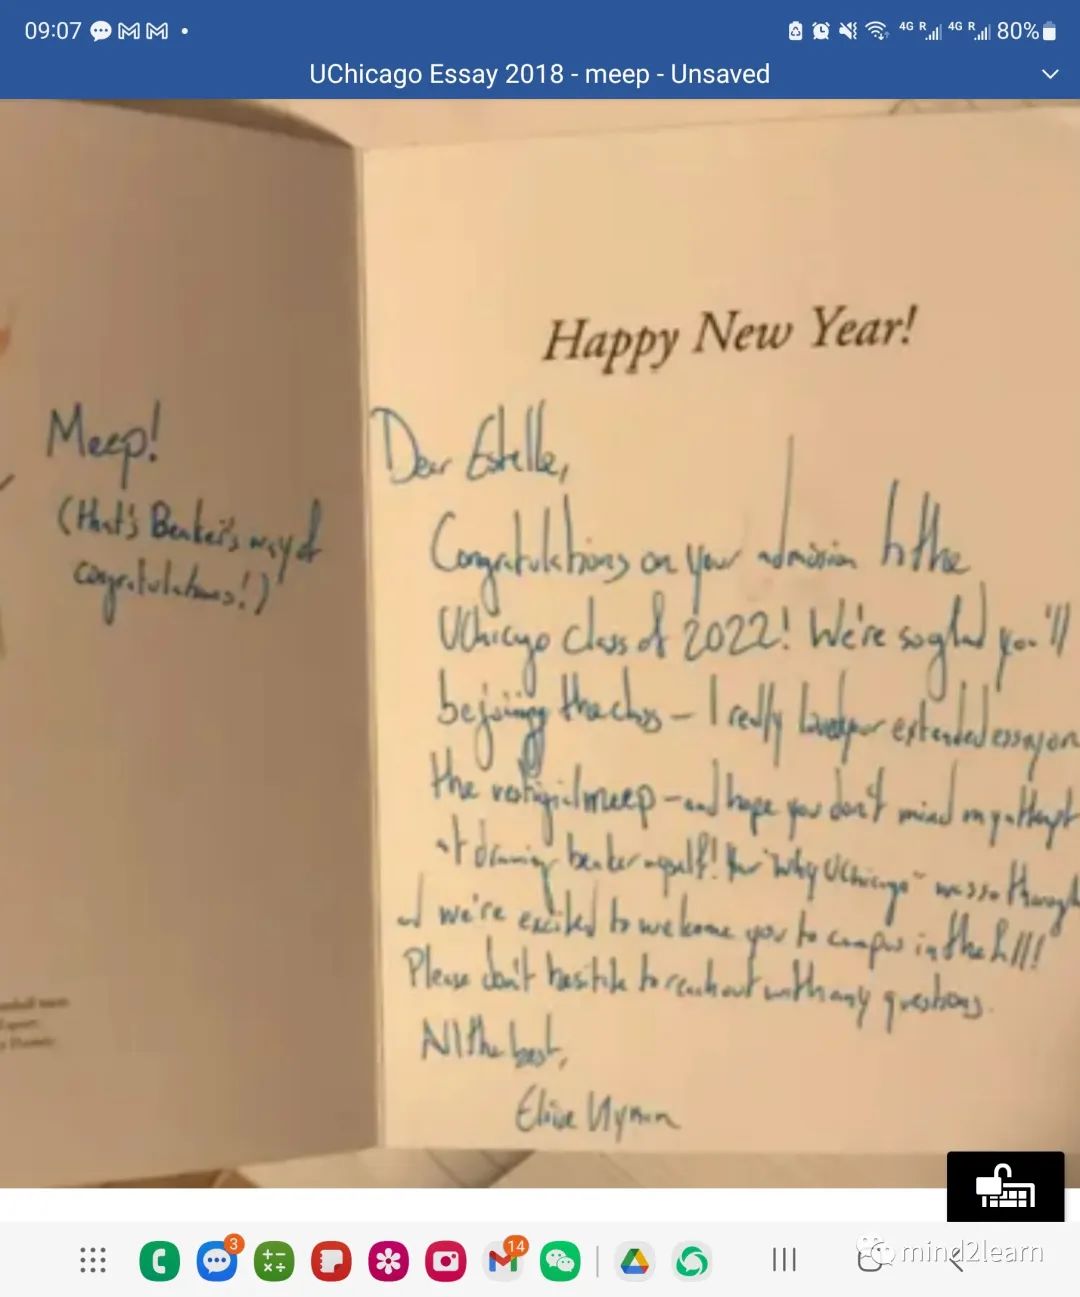 09:07
4G R 4G R 80%
UChicago Essay 2018 - meep - Unsaved
Happy New Year!
Meep!
(that's Beaker's way of
congratulations!)
Dear Estelle,
Congratulations on your admission to the
UChicago class of 2022! We're so glad you'll
be joining the class – I really loved your extended essay on
the vestigial meep – and hope you don't mind my attempt
at drawing beaker myself! Your "Why UChicago" was so thorough
and we're excited to welcome you to campus in the fall!
Please don't hesitate to reach out with any questions.
All the best,
3
14
mind2learn